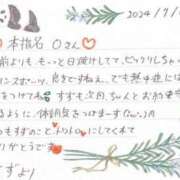 2024/7/
本指名 Oさん
前よりも、もっと日焼けしてて、ビックリしちゃ
ンスポーツ、良きですねぇ、でも熱中症には
をつけてね すずも次月、ちゃんとお約束
るように、体調気をつけまーす(^^)ノ
つもすずのことトクベツにしてくれて
りがとうです
ずより